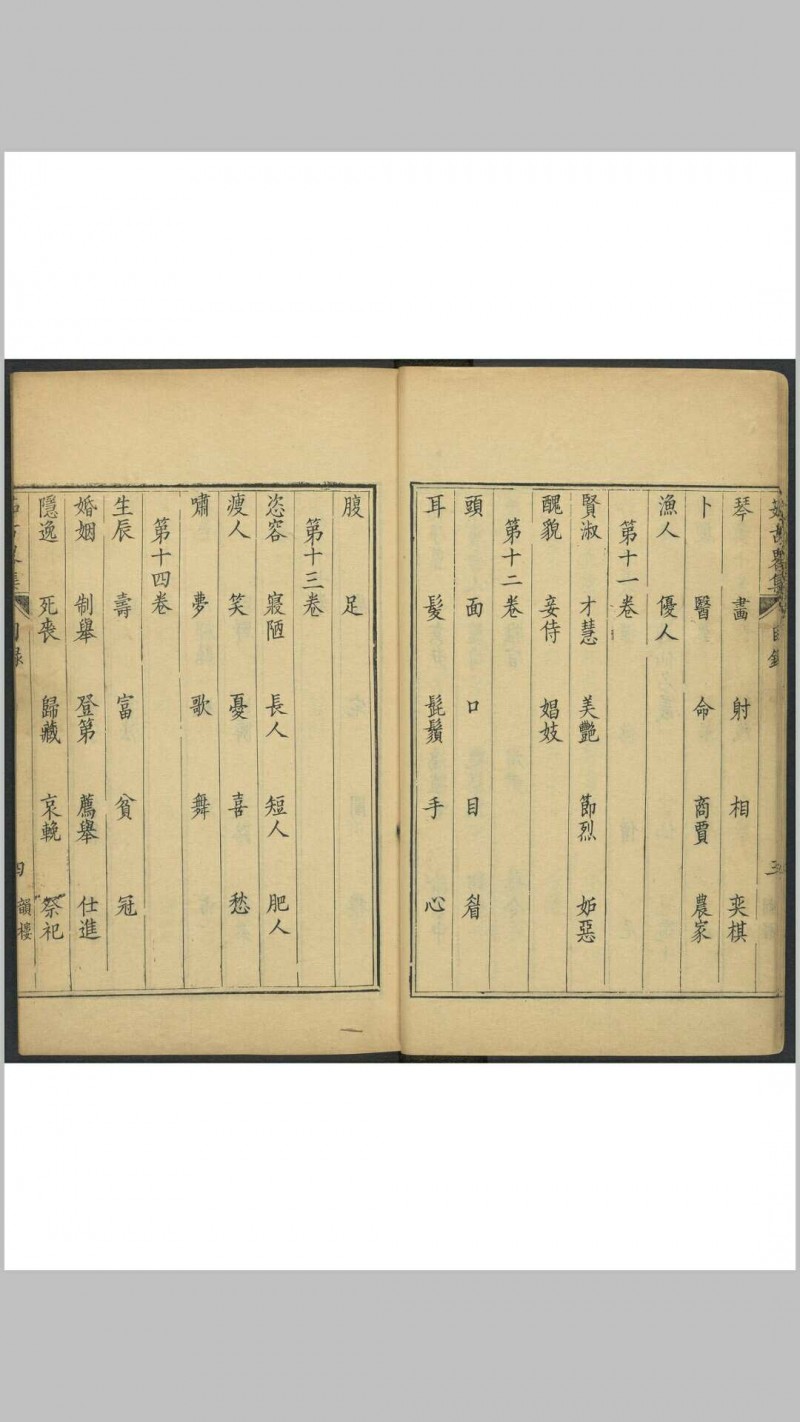 琴 畫 射 相 奕棋
卜 醫 命 商賈 農家
漁人 優人
第十一卷
賢淑 才慧 美艷 節烈 妬惡
醜貌 妾侍 娼妓
第十二卷
頭 面 口 目 眉
耳 髮 髭鬚 手 心
腹 足
第十三卷
恣容 寢陋 長人 短人 肥人
瘦人 笑 憂 喜 愁
嘯 夢 歌 舞
第十四卷
生辰 壽 富 貧 冠
婚姻 制舉 登第 薦舉 仕進
隱逸 死喪 歸藏 哀輓 祭祀
四 韻樓